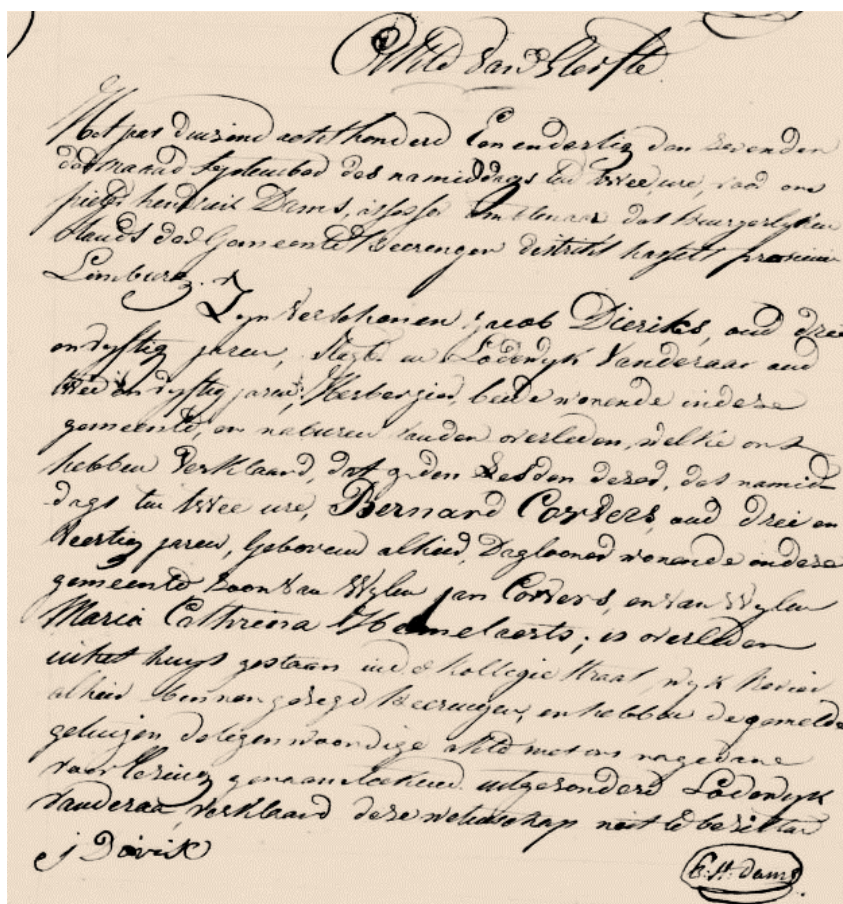 Akte van Sterfte
Het jaar duizend achthonderd Een en dertig den sevenden
der maand September des namiddags ten twee ure, voor ons
pieter hendrick Dams, assessor Ambtenaar des Burgerlyken
Stands der Gemeente Heeren district hasselt provincie
Limburg.
Zyn Verschenen jacob Dieriks, oud drie
en vyftig jaren, en Lodewyk Vanderaar oud
twee en vyftig jaren, Herbergier, beide wonende in deze
gemeente, en naburen van den overleden, welke ons
hebben Verklaard, dat op den Sesden dezer, des namid-
dags ten twee ure, Bernard Corvers, oud drie en
Veertig jaren, Geboren alhier, Daglooner wonende in deze
gemeente zoon van Wylen jan Corvers, en van Wylen
Maria Cathrina Hemelaerts; is overleden
in het huys gestaan in de kollegie straat, wyk
alhier binnen gezegd en hebben de gemelde
getuigen de tegenwoordige akte met ons na gedane
voorlezing genaamteekend uitgesonderd Lodewyk
Vanderaar, Verklaard deze wetenschap niet te bezitten
j Dirik
E. H. Dams